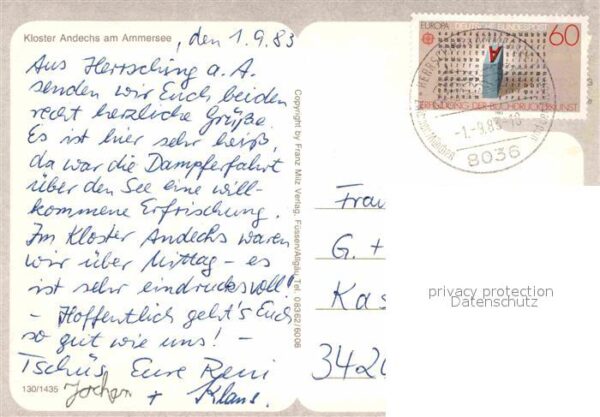 Kloster Andechs am Ammersee
, den 1.9.83
Aus Herrsching a. A.
senden wir Euch beiden
recht herzliche Grüße
Es ist hier sehr heiß,
da war die Dampferfahrt
über den See eine will-
kommene Erfrischung.
Im Kloster Andechs waren
wir über Mittag - es
ist sehr eindrucksvoll
- Hoffentlich geht's Euch
so gut wie uns! -
Tschüs Eure Reni
Jochen + Klaus.
130/1435
Copyright by Franz Milz Verlag, Füssen/Allgäu Tel. 08362/6006
EUROPA DEUTSCHE BUNDESPOST
60
A
ERFINDUNG DER BUCHDRUCKERKUNST
-1.-9.83-10
8036
Frau
G. +
Kas
3420
privacy protection
Datenschutz